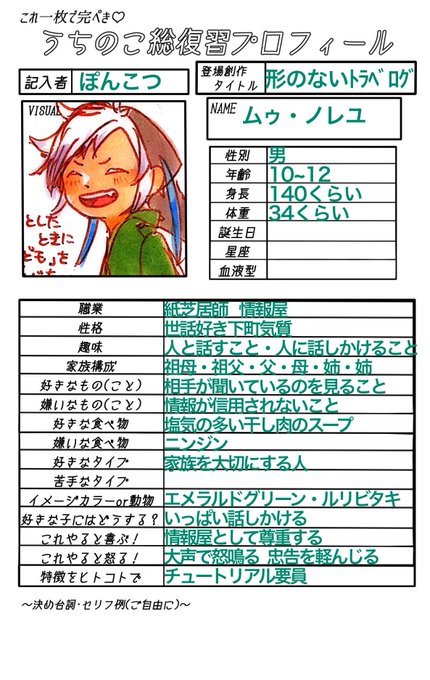 これ一枚で完ぺき♡
うちのこ総復習プロフィール
記入者 ぽんこつ
登場創作タイトル 形のないﾄﾗﾍﾞﾛｸﾞ
VISUAL
NAME ムゥ・ノレユ
としたときに
ども」を
性別 男
年齢 10~12
身長 140くらい
体重 34くらい
誕生日
星座
血液型
職業 紙芝居師 情報屋
性格 世話好き下町気質
趣味 人と話すこと・人に話しかけること
家族構成 祖母・祖父・父・母・姉・姉
好きなもの(こと) 相手が聞いているのを見ること
嫌いなもの(こと) 情報が信用されないこと
好きな食べ物 塩気の多い干し肉のスープ
嫌いな食べ物 ニンジン
好きなタイプ 家族を大切にする人
苦手なタイプ
イメージカラーor動物 エメラルドグリーン・ルリビタキ
好きな子にはどうする? いっぱい話しかける
これやると喜ぶ! 情報屋として尊重する
これやると怒る! 大声で怒鳴る 忠告を軽んじる
特徴をヒトコトで チュートリアル要員
〜決め台詞・セリフ例(ご自由に)〜